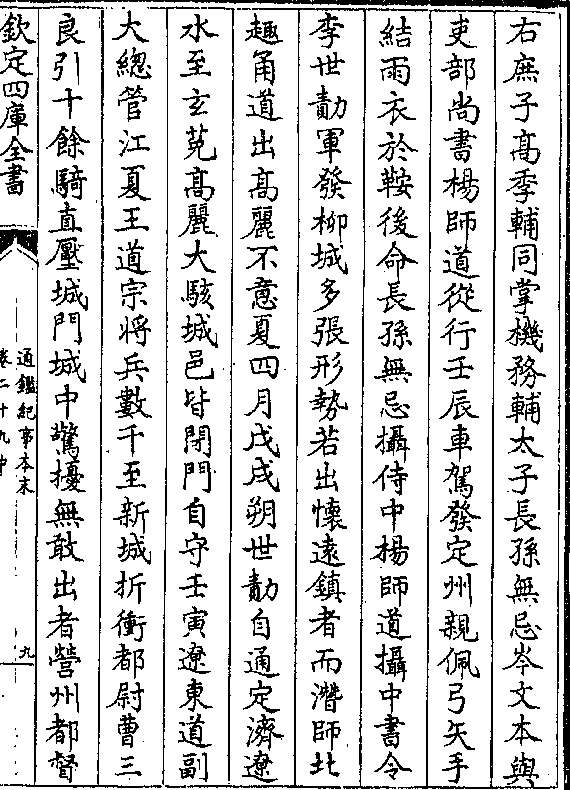 右庶子髙季輔同掌機務輔太子長孫無忌岑文本與
吏部尚書楊師道從行壬辰車駕發定州親佩弓矢手
結雨衣於鞍後命長孫無忌攝侍中楊師道攝中書令
李世勣軍發柳城多張形勢若出懷遠鎮者而潛師北
趣甬道出髙麗不意夏四月戊戌朔世勣自通定濟遼
水至玄菟髙麗大駭城邑皆閉門自守壬寅遼東道副
大總管江夏王道宗將兵數千至新城折衝都尉曹三
良引十餘騎直壓城門城中驚擾無敢出者營州都督
欽定四庫全書
通鑑紀事本末
卷二十九中
九